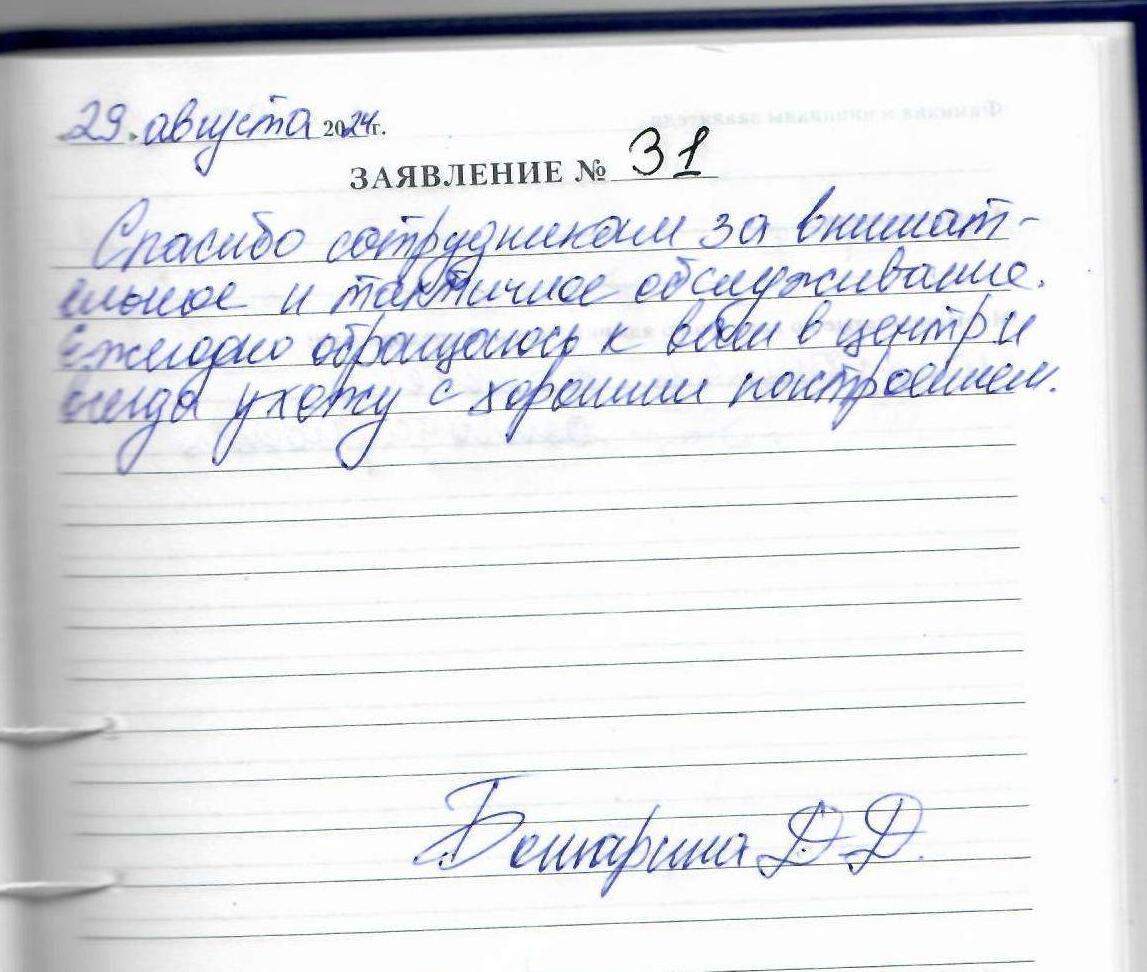 29 августа 2024г.
ЗАЯВЛЕНИЕ № 31
Спасибо сотрудникам за внимат-
ельное и тактичное обслуживание.
Ежегодно обращаюсь к вам в центр и
всегда ухожу с хорошим настроением.
Д.Д.